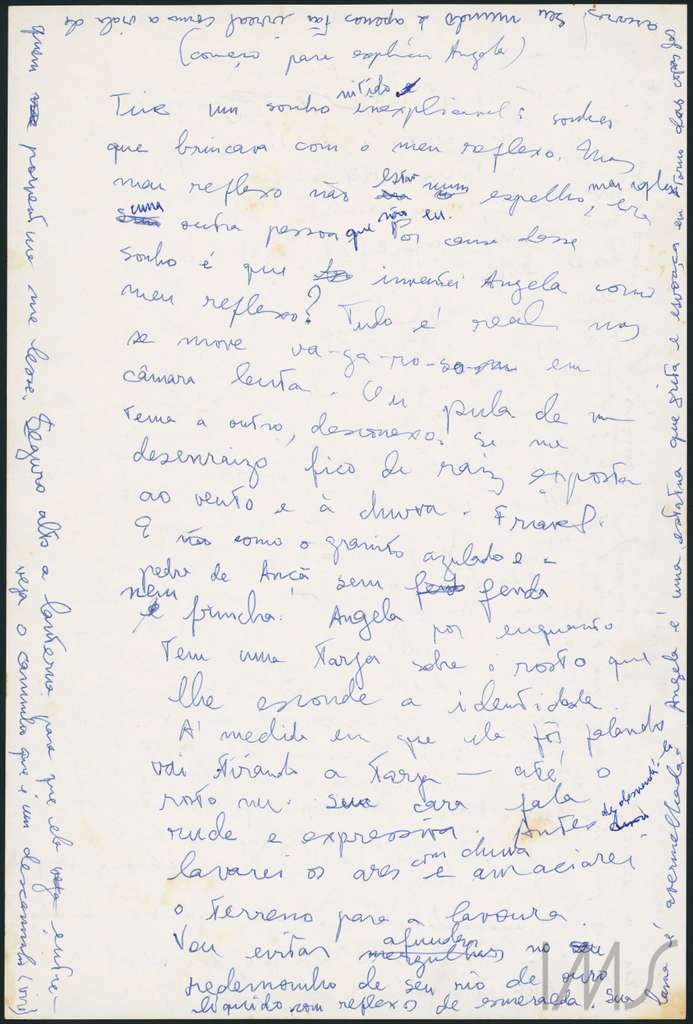 (começo para explicar Angela)
Tive um sonho nítido inexplicável: sonhei
que brincava com o meu reflexo. Mas
meu reflexo não estava num espelho, meu reflexo era
uma outra pessoa que não eu. Por causa desse
sonho é que inventei Angela como
meu reflexo? Tudo é real mas
se move va-ga-ro-so em
câmara lenta. Ou pula de um
tema a outro, desconexo. Se me
desenraizo fico de raiz exposta
ao vento e à chuva. Friavel.
E não como o granito azulado e a
pedra de Ançã sem fenda
nem frincha. Angela por enquanto
tem uma tarja sobre o rosto que
lhe esconde a identidade.
À medida em que ela fôr falando
vai tirando a tarja — até o
rosto nu. Sua cara fala
rude e expressiva. Antes de desvendá-la
lavarei os ares com chuva e amaciarei
o terreno para a lavoura.
Vou evitar afundar no
redemoinho de seu rio de ouro
liquido com reflexos de esmeralda. Sua
lama é avermelhada. Angela é uma estatua que grita e esvoaça em torno das copas das
arvores. Seu mundo é apenas tão irreal como a vida de
quem porventura me lesse. Seguro alto a lanterna para que ela entre-
veja o caminho que é um descaminho
IMS